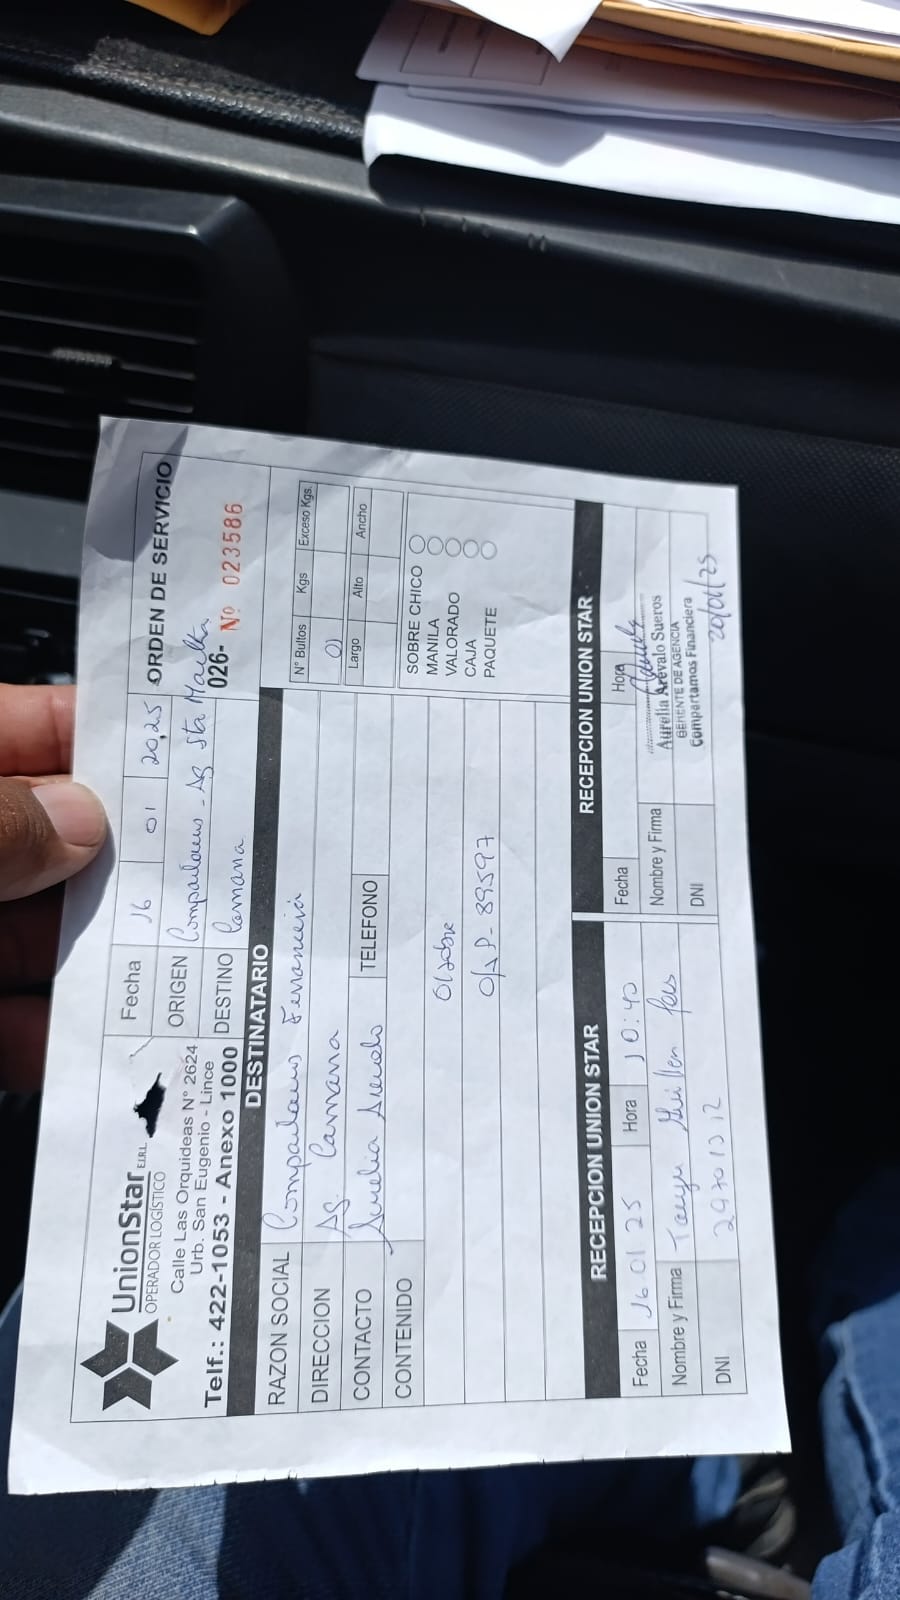 UnionStar E.I.R.L.
OPERADOR LOGÍSTICO
Calle Las Orquideas N° 2624
Urb. San Eugenio - Lince
Telf.: 422-1053 - Anexo 1000
Fecha 16 01 2025
ORIGEN - Ag Sta Martha
DESTINO Camana
ORDEN DE SERVICIO
026- Nº 023586
DESTINATARIO
RAZON SOCIAL
DIRECCION Ag Camana
CONTACTO Aurelia Arevalo TELEFONO
CONTENIDO
01 sobre
O/P - 89597
N° Bultos Kgs Exceso Kgs.
01
Largo Alto Ancho
SOBRE CHICO
MANILA
VALORADO
CAJA
PAQUETE
RECEPCION UNION STAR
Fecha 16 01 25 Hora 10:40
Nombre y Firma Guillen
DNI
RECEPCION UNION STAR
Fecha Hora
Nombre y Firma
Aurelia Arévalo Sueros
GERENTE DE AGENCIA
Compartamos Financiera
DNI
20/01/25